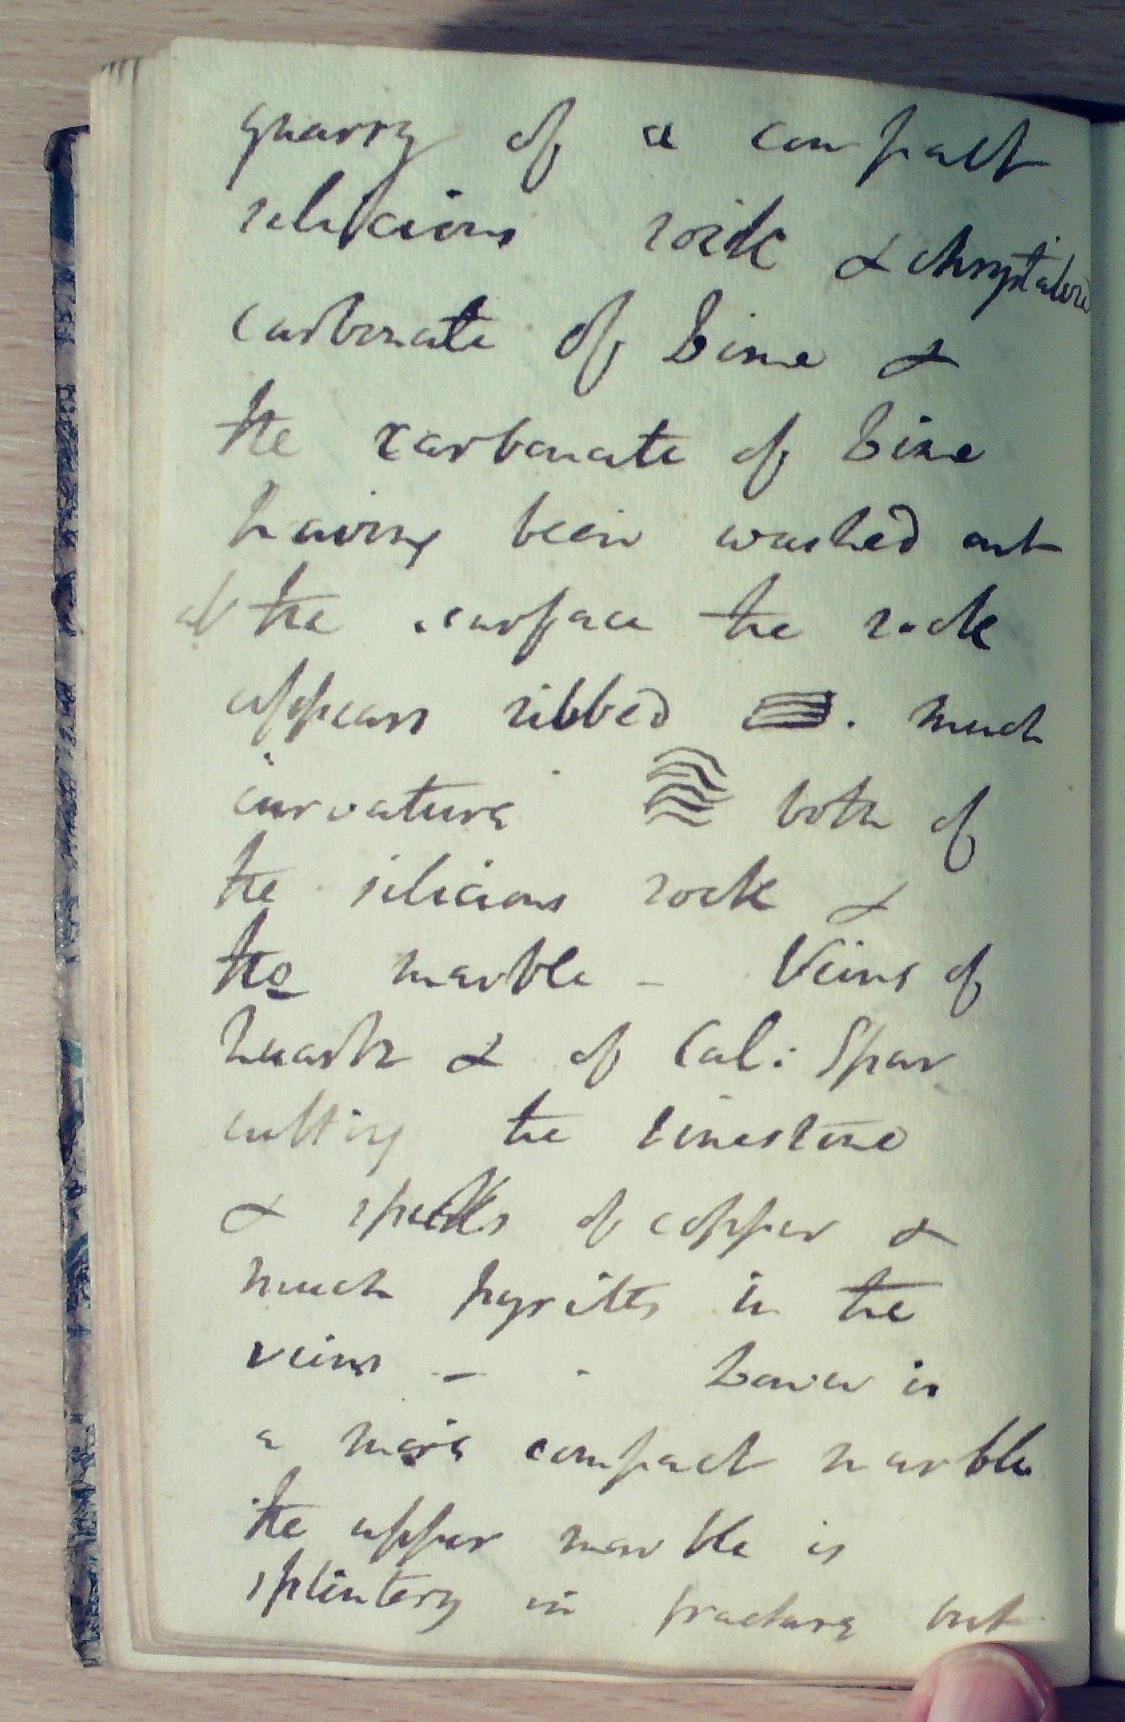 quarry of a compact
silicious rock & chrystalized
carbonate of Lime &
the carbonate of Lime
having been washed out
at the surface the rock
appears ribbed . much
curvature both of
the silicious rock &
the marble - Veins of
Quartz & of Cal: Spar
cutting the limestone
& specks of copper &
much pyrites in the
veins - - Lower is
a more compact marble
the upper marble is
splintery in fracture but